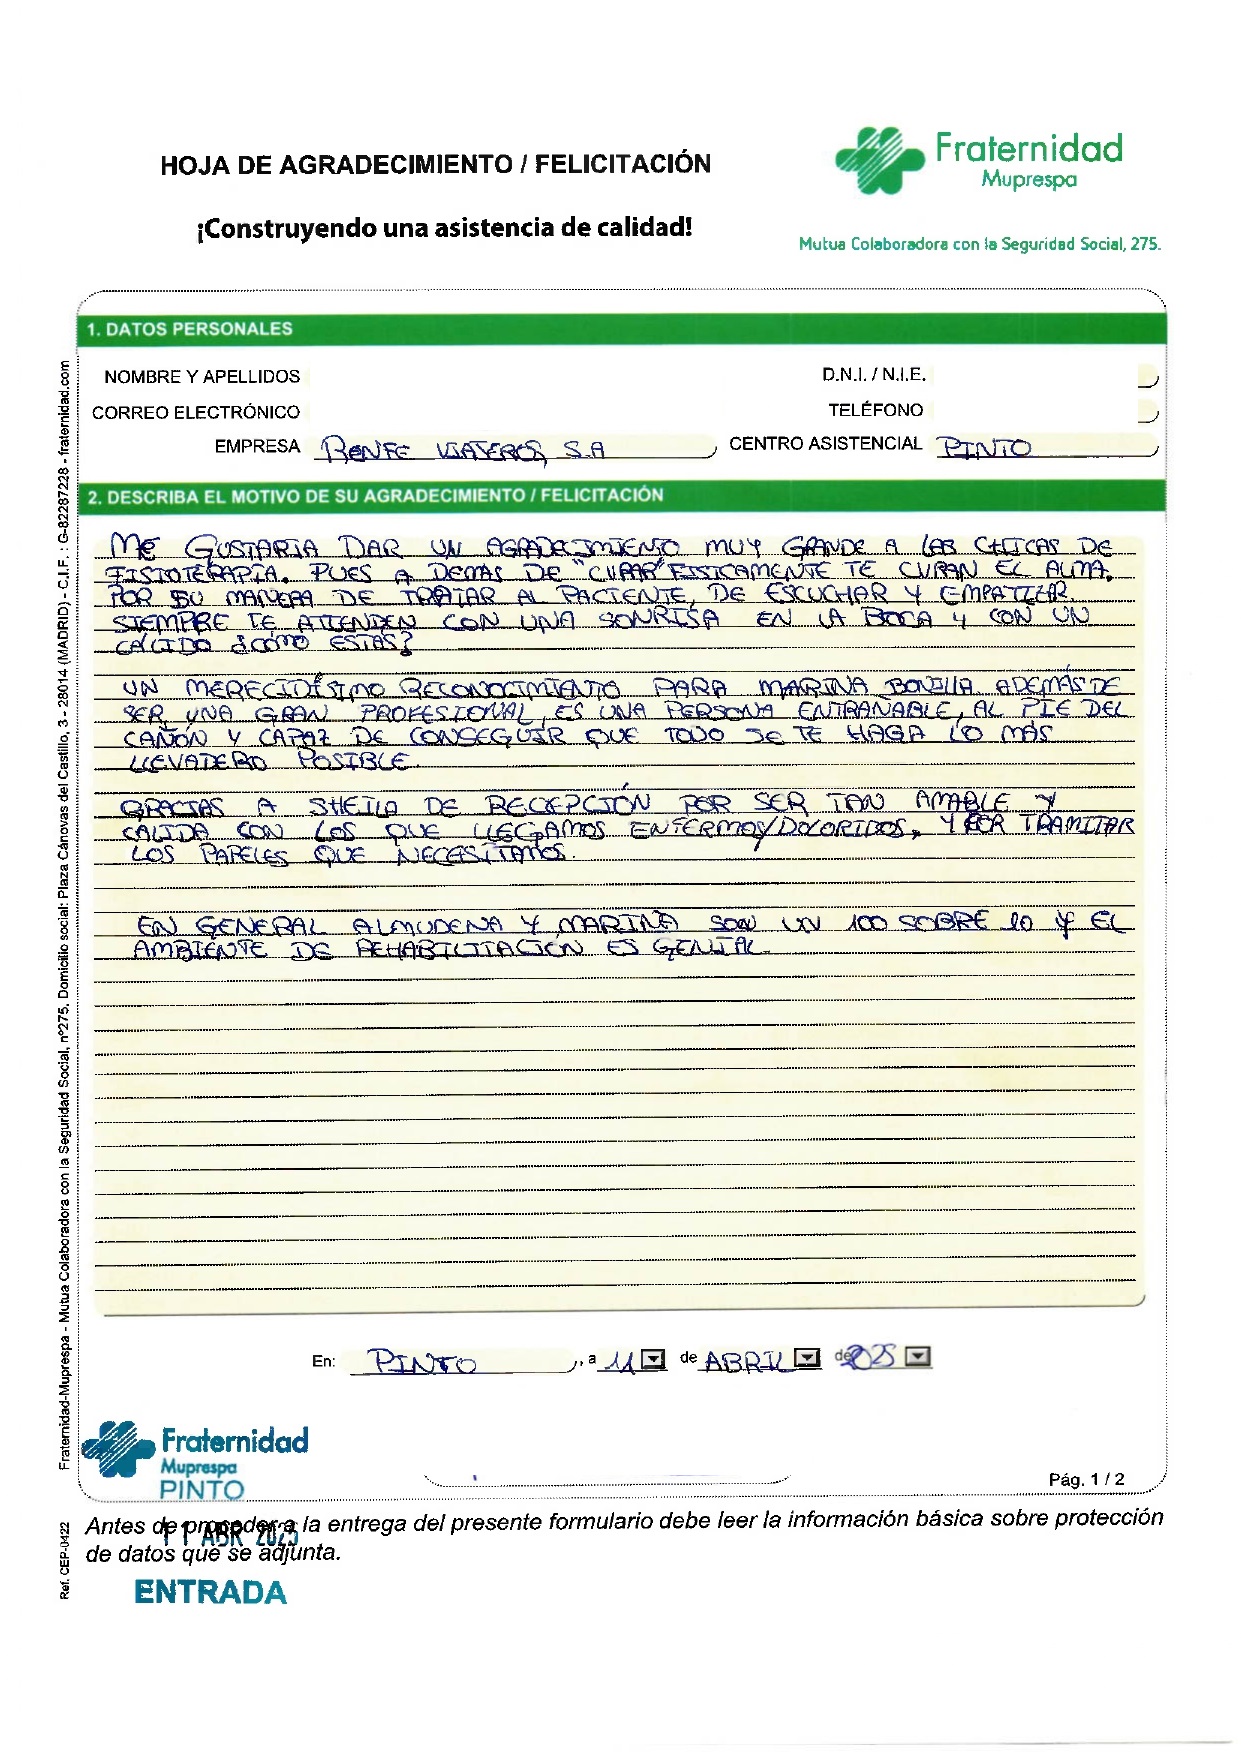 HOJA DE AGRADECIMIENTO / FELICITACIÓN
¡Construyendo una asistencia de calidad!
Fraternidad
Muprespa
Mutua Colaboradora con la Seguridad Social, 275.
1. DATOS PERSONALES
NOMBRE Y APELLIDOS
D.N.I. / N.I.E.
CORREO ELECTRÓNICO
TELÉFONO
EMPRESA RENFE VIAJEROS, S.A
CENTRO ASISTENCIAL PINTO
2. DESCRIBA EL MOTIVO DE SU AGRADECIMIENTO / FELICITACIÓN
ME GUSTARIA DAR UN AGRADECIMIENTO MUY GRANDE A LAS CHICAS DE
FISIOTERAPIA. PUES A DEMAS DE "CURAR" FISICAMENTE TE CURAN EL ALMA.
POR SU MANERA DE TRATAR AL PACIENTE, DE ESCUCHAR Y EMPATIZAR
SIEMPRE TE ATIENDEN CON UNA SONRISA EN LA BOCA Y CON UN
CALIDO ¿CÓMO ESTAS?
UN MERECIDÍSIMO RECONOCIMIENTO PARA MARINA BONILLA. ADEMÁS DE
SER, UNA GRAN PROFESIONAL, ES UNA PERSONA ENTRAÑABLE, AL PIE DEL
CAÑÓN Y CAPAZ DE CONSEGUIR QUE TODO SE TE HAGA LO MÁS
LLEVADERO POSIBLE.
GRACIAS A SHEILA DE RECEPCIÓN POR SER TAN AMABLE Y
CALIDA CON LOS QUE LLEGAMOS ENFERMOS/DOLORIDOS, Y POR TRAMITAR
LOS PAPELES QUE NECESITAMOS.
EN GENERAL ALMUDENA Y MARINA SON UN 100 SOBRE 10 Y EL
AMBIENTE DE REHABILITACIÓN ES GENIAL
En: PINTO, a 11 de ABRIL de 2025
Fraternidad
Muprespa
PINTO
11 ABR 2025
ENTRADA
Pág. 1 / 2
Antes de proceder a la entrega del presente formulario debe leer la información básica sobre protección
de datos que se adjunta.
Fraternidad-Muprespa - Mutua Colaboradora con la Seguridad Social, nº275. Domicilio social: Plaza Cánovas del Castillo, 3 - 28014 (MADRID) - C.I.F. : G-82287228 - fraternidad.com
Ref. CEP-0422